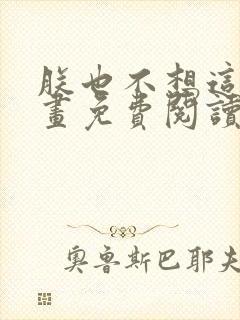 朕也不想這
畫免費閱讀
奧魯斯巴耶夫